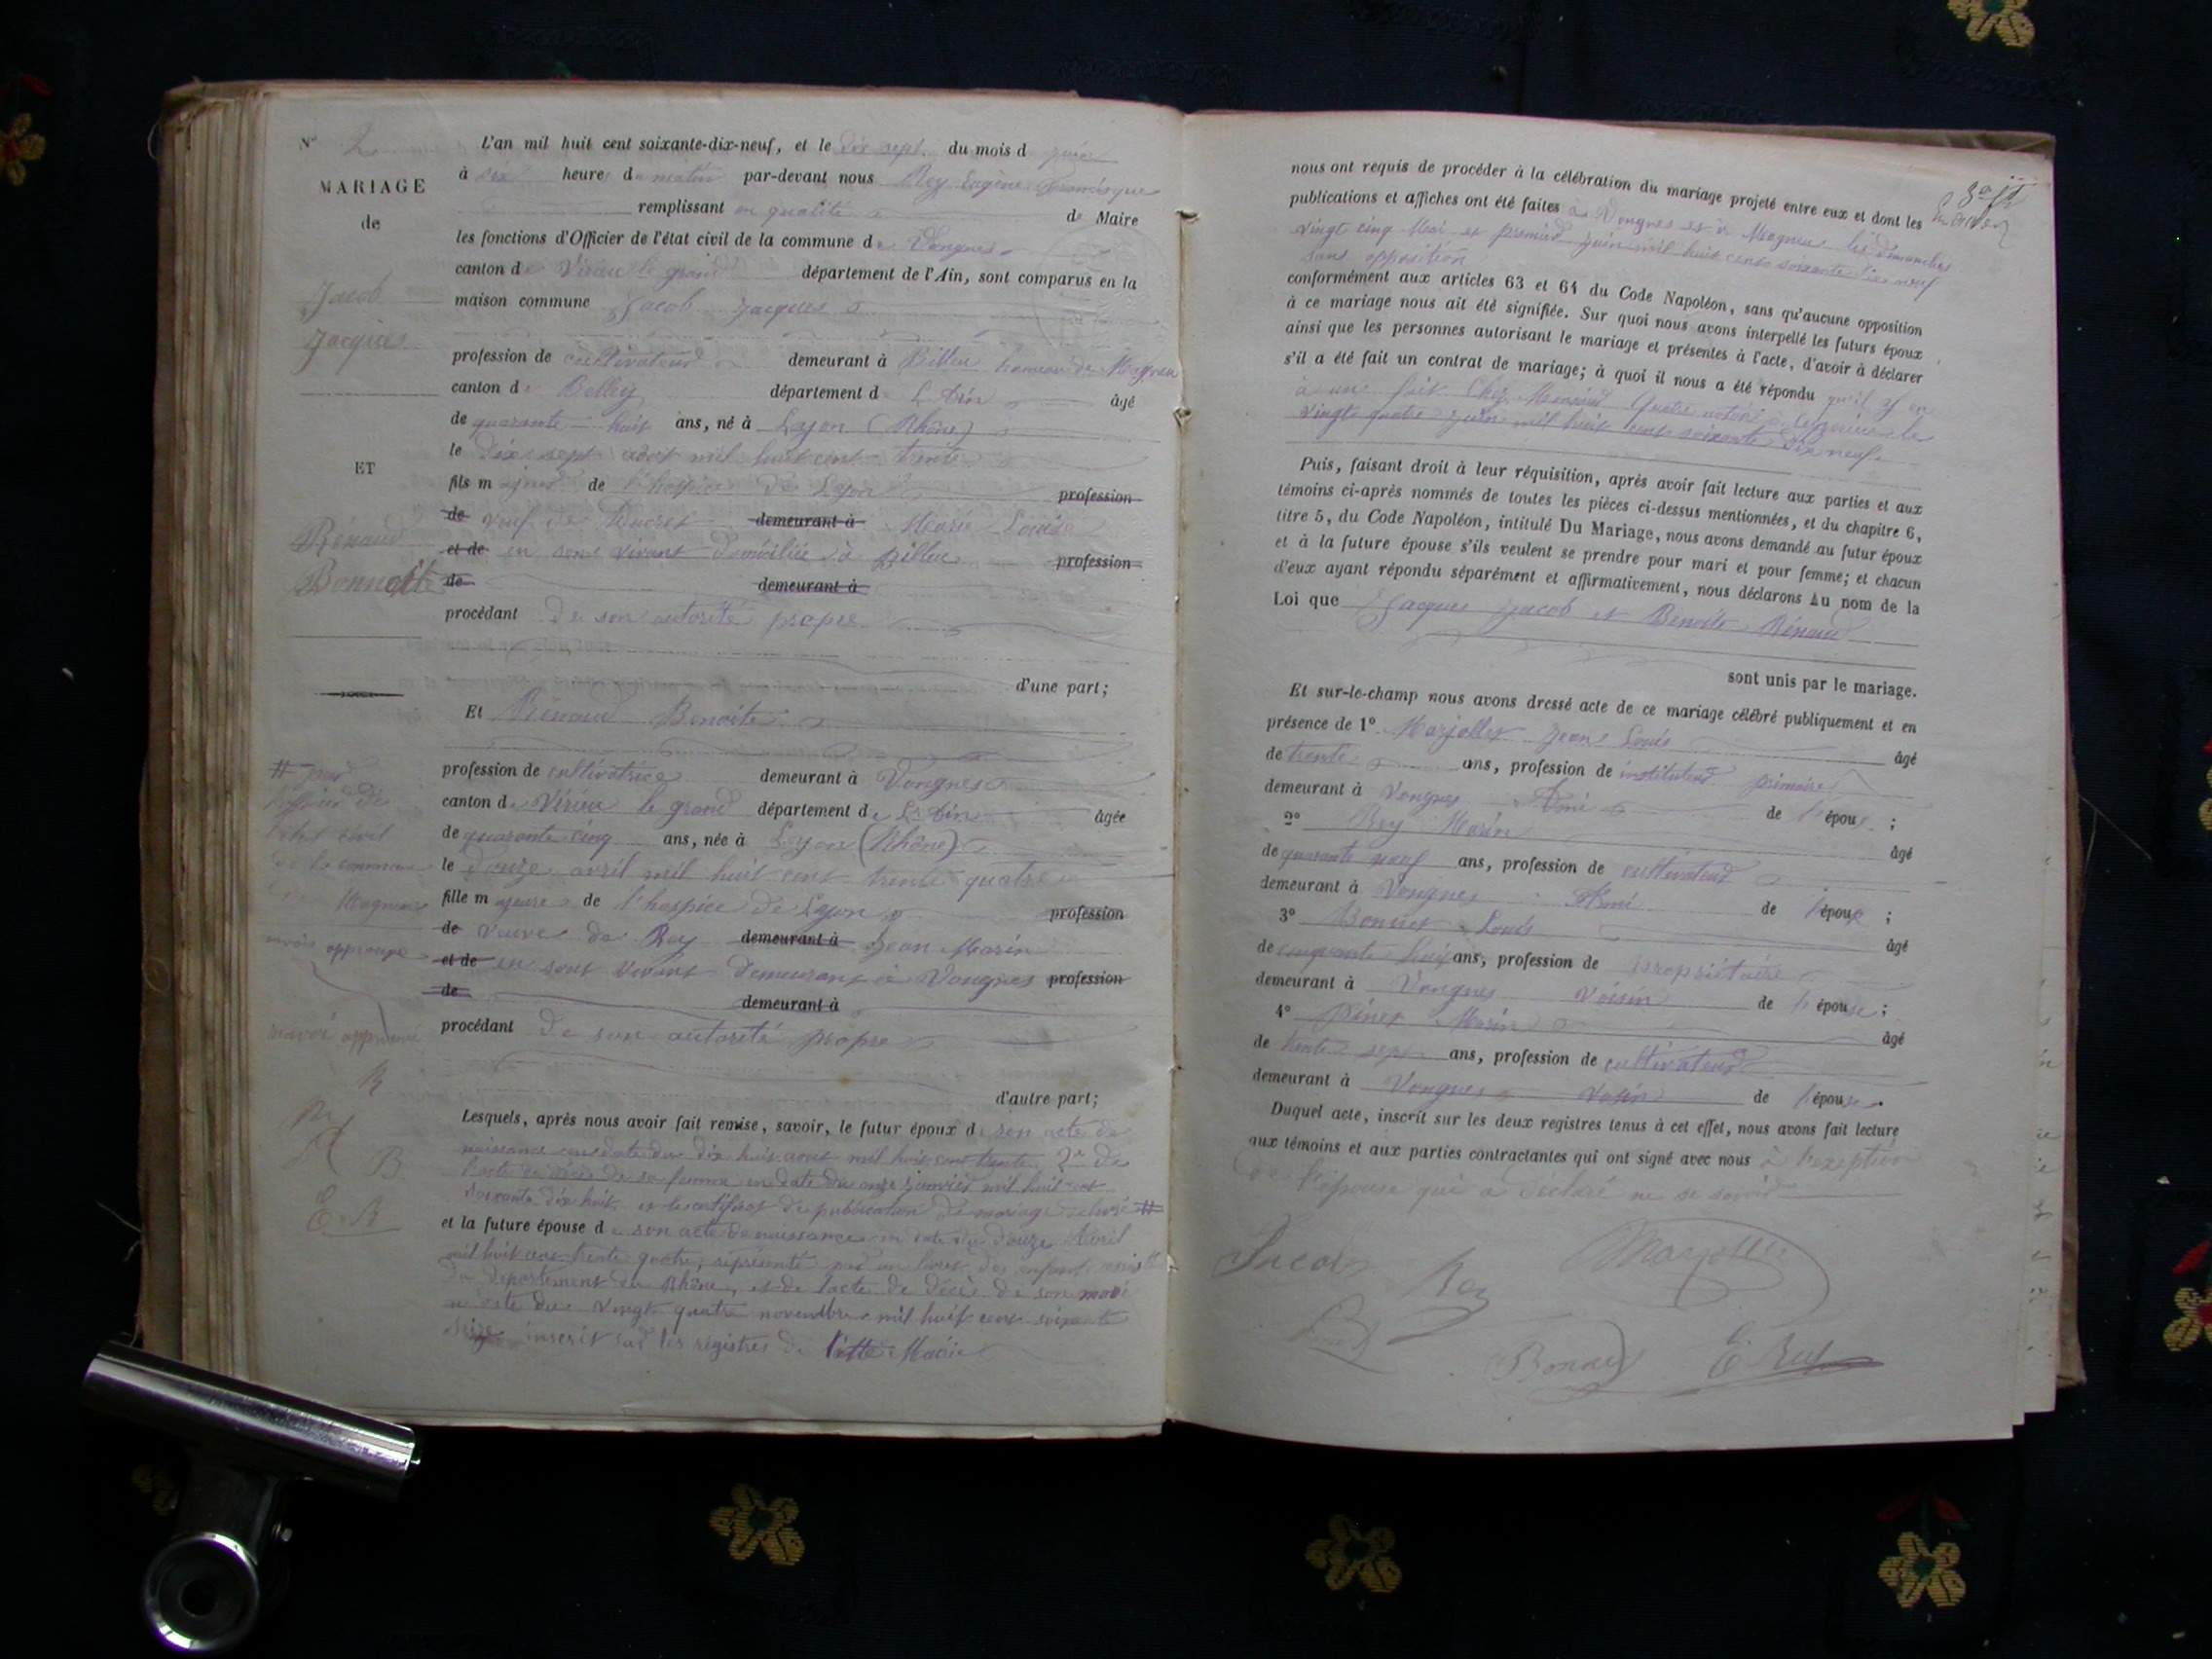 N° 2
MARIAGE
de
Jacob
Jacques
ET
Rénaud
Bennoite
L'an mil huit cent soixante-dix-neuf, et le dix sept du mois d juin
à six heure du matin par-devant nous Rey Eugène
remplissant en qualité de Maire
les fonctions d'Officier de l'état civil de la commune de Vongnes
canton de Virieu le grand département de l'Ain, sont comparus en la
maison commune Jacob Jacques
profession de cultivateur demeurant à Billieu hameau de Magnieu
canton de Belley département d L'Ain âgé
de quarante-huit ans, né à Lyon (Rhône)
le dix sept août mil huit cent trente
fils majeur de l'hospice de Lyon profession
de veuf de Ducret demeurant à Marie Louise
et de en son vivant domiciliée à Billieu profession
de demeurant à
procédant de son autorité propre
d'une part;
Et Rénaud Benoite
profession de cultivatrice demeurant à Vongnes
canton de Virieu le grand département de L'Ain âgée
de quarante cinq ans, née à Lyon (Rhône)
le douze avril mil huit cent trente quatre
fille majeure de l'hospice de Lyon profession
de veuve de Rey demeurant à Jean Marin
et de en sont vivant demeurant à Vongnes profession
de demeurant à
procédant de son autorité propre
d'autre part;
Lesquels, après nous avoir fait remise, savoir, le futur époux de son acte de
naissance en date du dix huit août mil huit cent trente 2° de
l'acte de décès de sa femme en date du onze janvier mil huit cent
soixante dix huit, et le certificat de publication de mariage #
et la future épouse de son acte de naissance en date du douze Avril
mil huit cent trente quatre, représenté par un livret des enfants
du département du Rhône, et de l'acte de décès de son mari
en date du vingt quatre novembre mil huit cent soixante
seize inscrit sur les registres de Mairie
# par
l'officier de
l'état civil
de la commune
de Magnieu
renvoi approuvé
R
B
E. R
nous ont requis de procéder à la célébration du mariage projeté entre eux et dont les
publications et affiches ont été faites à Vongnes et à Magnieu les dimanches
vingt cinq Mai et premier juin mil huit cent soixante dix neuf
sans opposition
conformément aux articles 63 et 64 du Code Napoléon, sans qu'aucune opposition
à ce mariage nous ait été signifiée. Sur quoi nous avons interpellé les futurs époux
ainsi que les personnes autorisant le mariage et présentes à l'acte, d'avoir à déclarer
s'il a été fait un contrat de mariage; à quoi il nous a été répondu qu'il y en
à un fait Chez notaire à le
vingt quatre juin mil huit cent soixante dix neuf.
Puis, faisant droit à leur réquisition, après avoir fait lecture aux parties et aux
témoins ci-après nommés de toutes les pièces ci-dessus mentionnées, et du chapitre 6,
titre 5, du Code Napoléon, intitulé Du Mariage, nous avons demandé au futur époux
et à la future épouse s'ils veulent se prendre pour mari et pour femme; et chacun
d'eux ayant répondu séparément et affirmativement, nous déclarons Au nom de la
Loi que Jacques Jacob et Benoite Rénaud
sont unis par le mariage.
Et sur-le-champ nous avons dressé acte de ce mariage célébré publiquement et en
présence de 1° Marjollet Jean Louis âgé
de trente ans, profession de instituteur primaire
demeurant à Vongnes Ami de l'époux ;
2° Rey Marin âgé
de quarante neuf ans, profession de cultivateur
demeurant à Vongnes Ami de l'époux ;
3° Bonnet Louis âgé
de cinquante huit ans, profession de propriétaire
demeurant à Vongnes Voisin de l'épouse ;
4° Marin âgé
de trente sept ans, profession de cultivateur
demeurant à Vongnes Voisin de l'épouse.
Duquel acte, inscrit sur les deux registres tenus à cet effet, nous avons fait lecture
aux témoins et aux parties contractantes qui ont signé avec nous à l'exeption
de l'épouse qui a déclaré ne le savoir
Jacob Rey Marjollet
Bonnet E. Rey